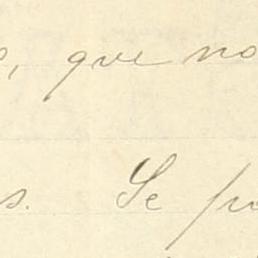 , que no
s. Se pu